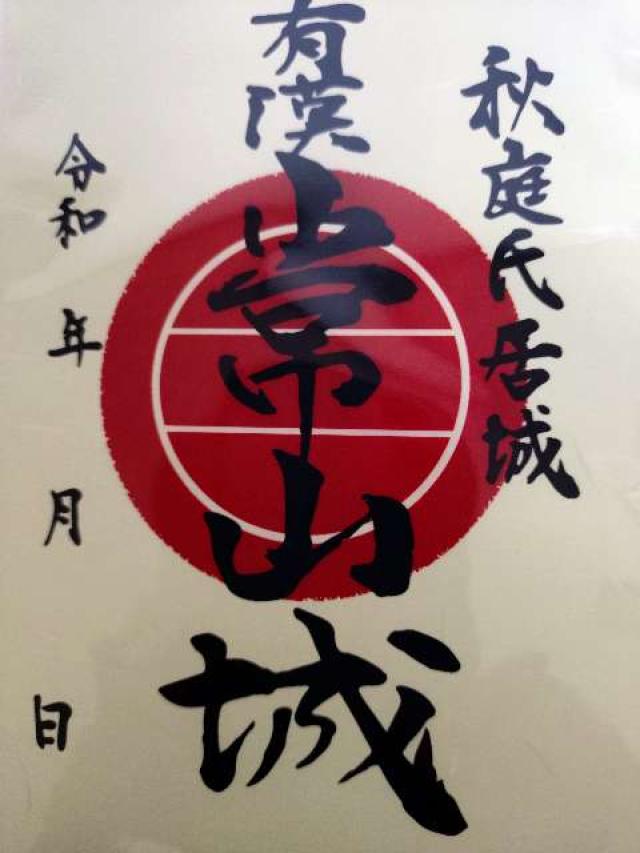 秋庭氏居城
有漢
常山城
令和 年 月 日